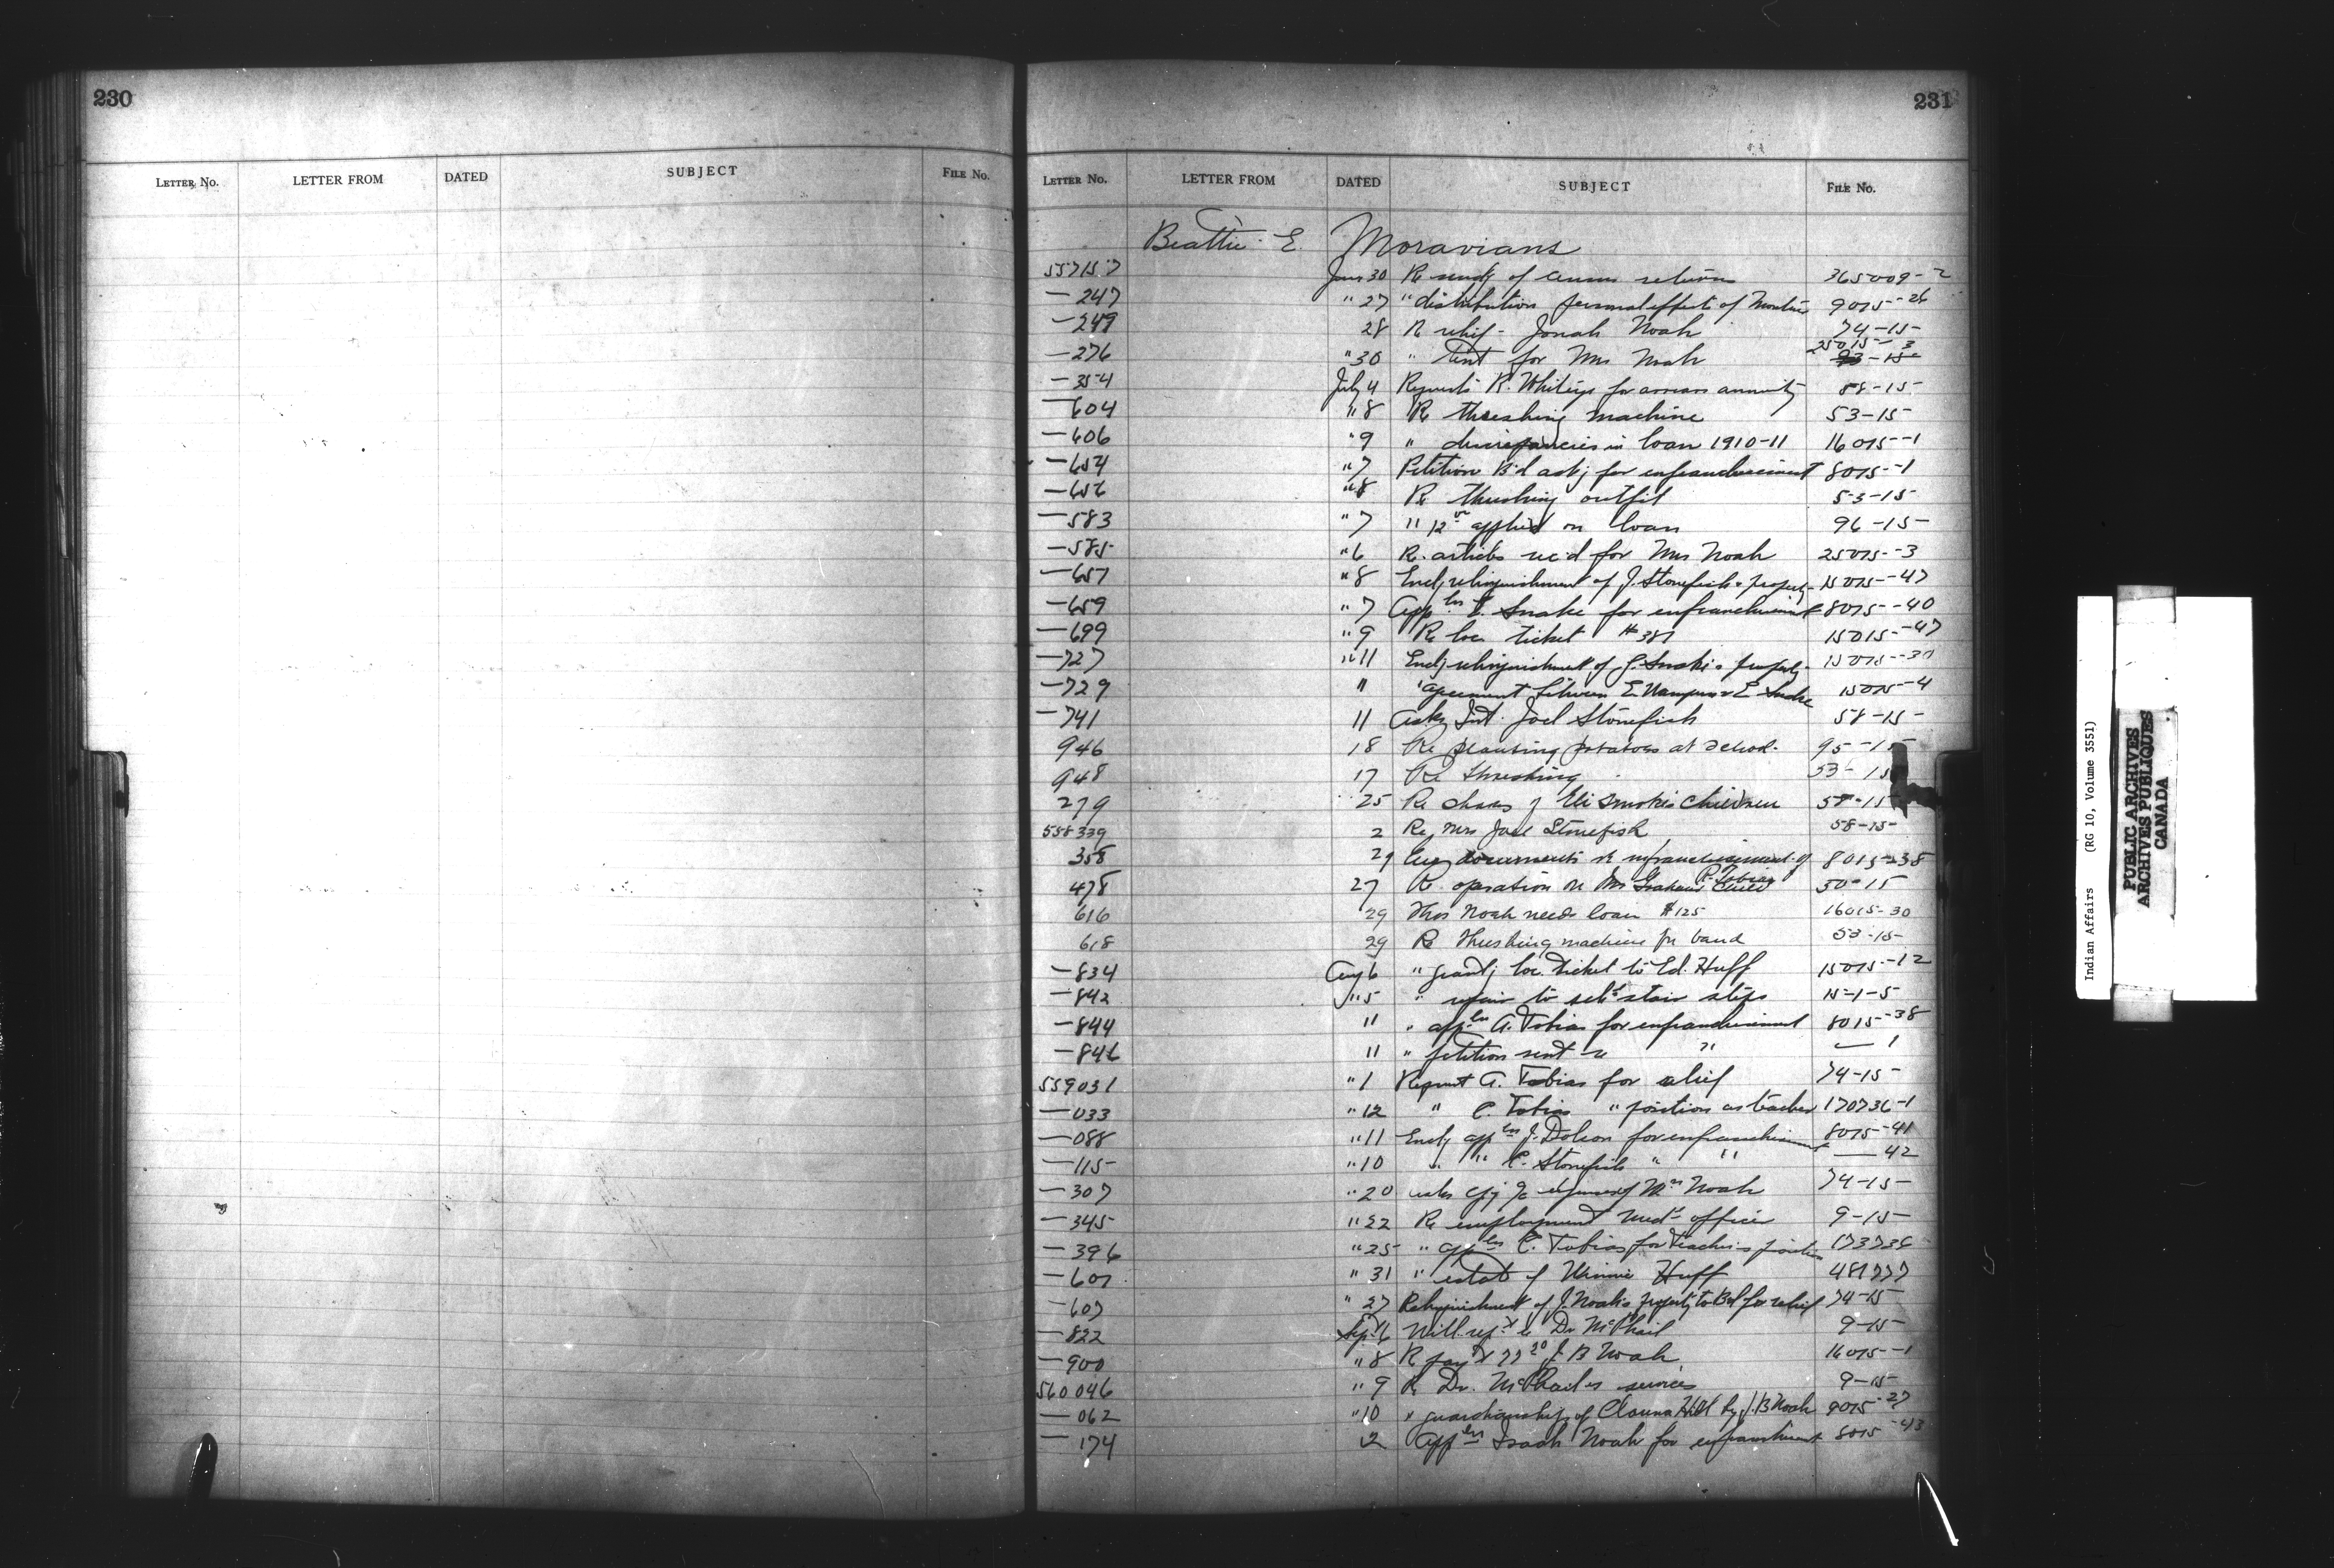 230
LETTER No. LETTER FROM DATED SUBJECT FILE No.
231
LETTER No. LETTER FROM DATED SUBJECT FILE No.
Beattie E. Moravians
557157 Jun 30 Re of census returns 365009-2
— 247 " 27 " distribution personal effects of 9015-26
— 249 28 Re relief - Jonah Noah 74-15-
— 276 " 30 " tent for Mrs Noah 25015-3
— 354 July 4 Requests R. Whiteye for arrears annuity 88-15-
— 604 " 8 Re threshing machine 53-15
— 606 " 9 " discrepancies in loan 1910-11 16015-1
— 654 " 7 Petition B'd askg for enfranchisement 8015-1
— 656 " 8 Re threshing outfit 53-15-
— 583 " 7 " 12 applied on loan 96-15-
— 585- " 6 Re articles rec'd for Mrs Noah 25015-3
— 657 " 8 Encl relinquishment of J. Stonefish's property 15015-47
— 659 " 7 Appln E. Snake for enfranchisement 8015-40
— 699 " 9 Re loc ticket #387 15015-47
— 727 " 11 Encl relinquishment of J. Snake's property 15015-30
— 729 " agreement between E. & E. Snake 15015-4
— 741 11 Asks Int. Joel Stonefish 58-15-
946 18 Re planting potatoes at school. 95-15
948 17 Re threshing 53-15
279 25 Re shares of Eli Smoke's children 58-15
558339 2 Re Mrs Joel Stonefish 58-15-
358 29 Encg documents re enfranchisement of R. Tobias 8015-38
478 27 Re operation on Mrs Graham's child 50-15
616 29 Thos Noah needs loan $125 16015-30
618 29 Re threshing machine for band 53-15-
— 834 Aug 6 " grantg loc. ticket to Ed. Huff 15015-12
— 842 " 5 " repair to sch'l stair steps 15-1-5
— 844 11 " appln A. Tobias for enfranchisement 8015-38
— 846 11 " petition sent re " — 1
559031 " 1 Request A. Tobias for relief 74-15-
— 033 " 12 " C. Tobias " position as teacher 170736-1
— 088 " 11 Encl appln J. Dolson for enfranchisement 8015-41
— 115- " 10 " " C. Stonefish " " — 42
— 307 " 20 asks expenses of Mrs Noah 74-15-
— 345- " 22 Re employment Med'l officer 9-15-
— 396 " 25- " appln C. Tobias for teachers position 173736
— 601 " 31 " estate of Winnie Huff 481777
— 607 " 27 Relinquishment of J. Noah's property to Bd for relief 74-15-
— 822 Sept 6 Will Dr McPhail 9-15-
— 900 " 8 Re J. B Noah 16015-1
560046 " 9 Re Dr. McPhail's services 9-15-
— 062 " 10 " guardianship of Hill by J. B Noah 9015-27
— 174 12 Appln Noah for enfranchisement 8015-43
Indian Affairs (RG 10, Volume 3551)
PUBLIC ARCHIVES
ARCHIVES PUBLIQUES
CANADA